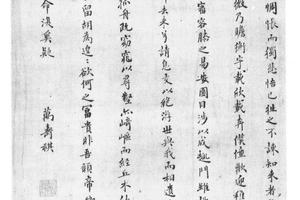 惆悵而獨悲悟已往之不諫知来者
微乃瞻衡宇載欣載奔僮僕歡迎稚
審容膝之易安園日涉以成趣門雖
去来兮請息交以絶游世與我而相遺
孤舟既窈窕以尋壑亦崎嶇而經丘木欣
留胡為遑〻欲何之富貴非吾願帝鄉
命復奚疑
萬壽祺